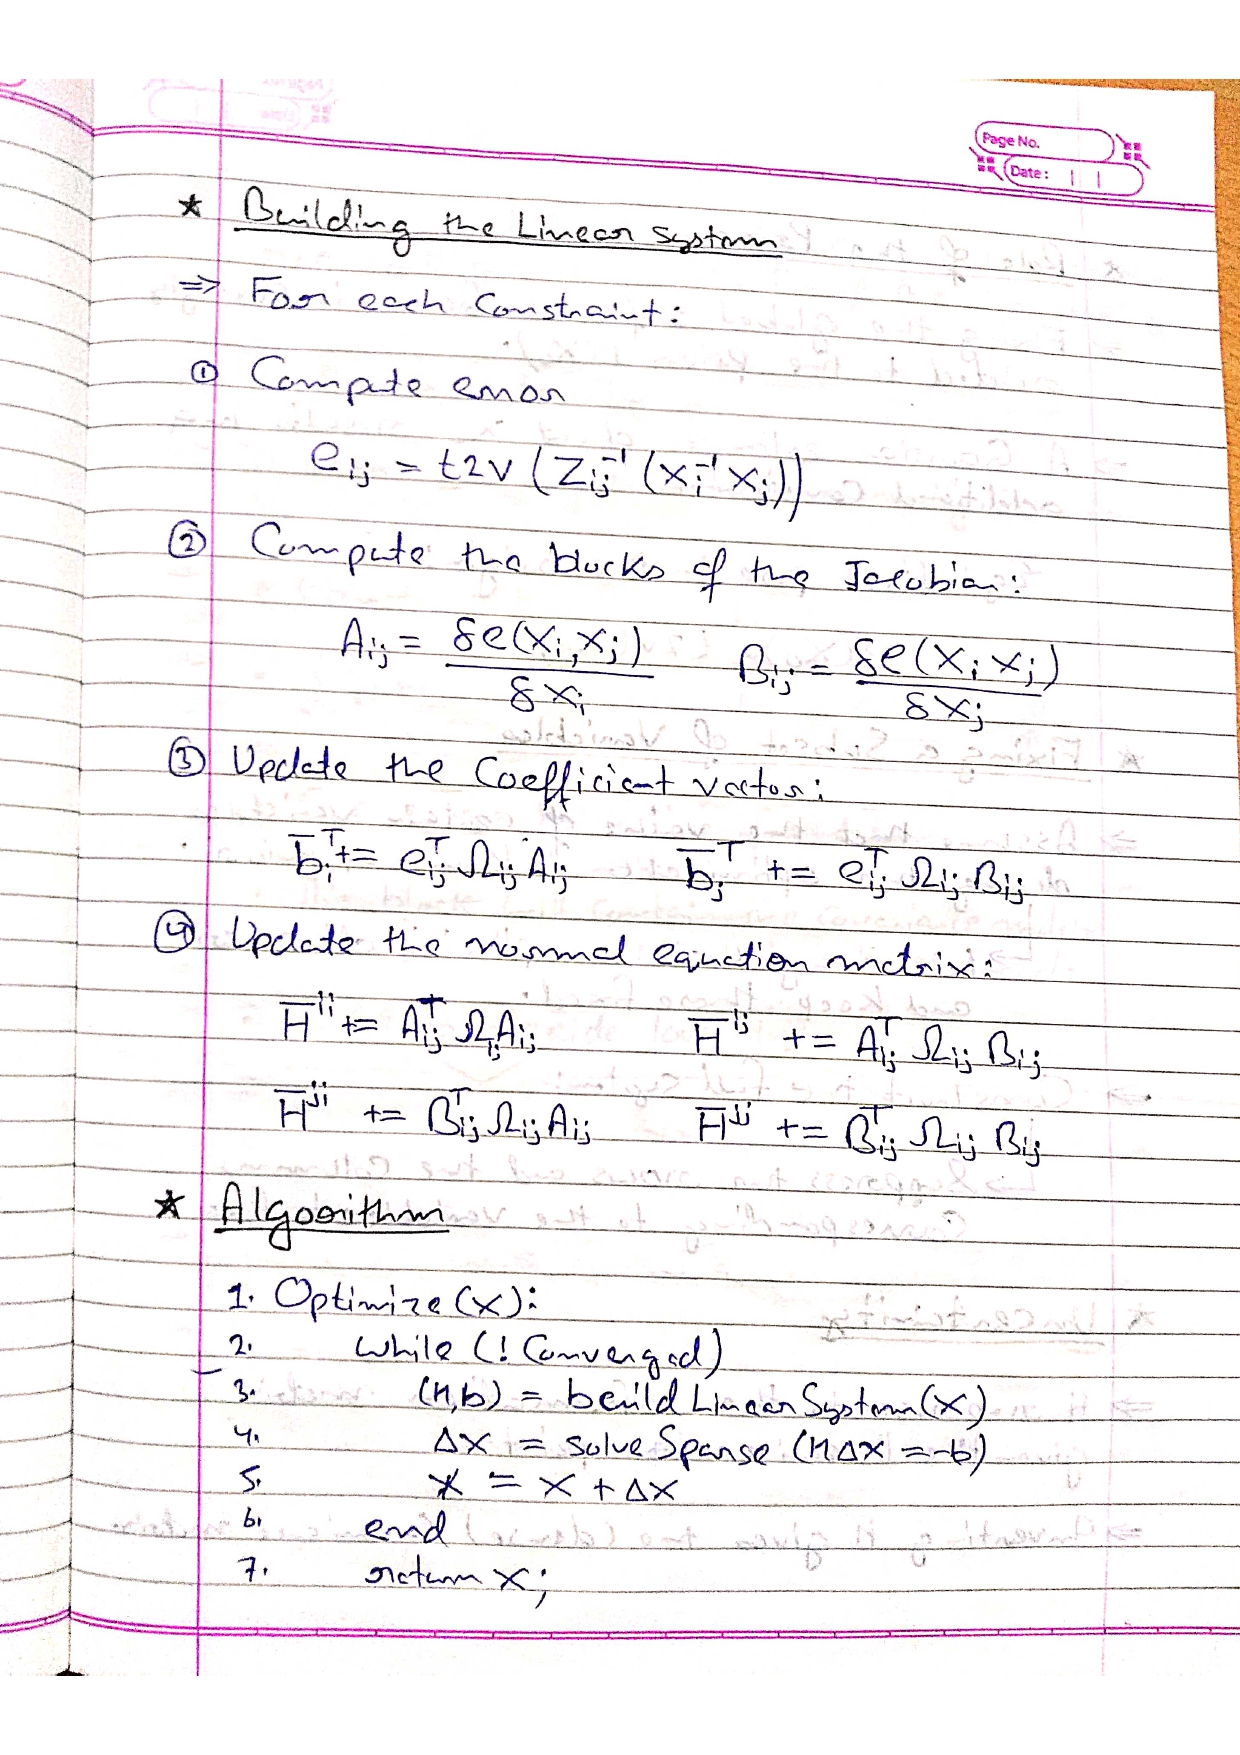 Page No.
Date: | |
★ Building the Linear System
⇒ For each Constraint:
① Compute error
e_ij = t2v (Z_ij^-1 (x_i^-1 x_j))
② Compute the blocks of the Jacobian:
A_ij = δe(x_i, x_j) / δx_i B_ij = δe(x_i x_j) / δx_j
③ Update the Coefficient vector:
b̄_i^T += e_ij^T Ω_ij A_ij b̄_j^T += e_ij^T Ω_ij B_ij
④ Update the normal equation matrix:
H̄^ii += A_ij^T Ω_ij A_ij H̄^ij += A_ij^T Ω_ij B_ij
H̄^ji += B_ij^T Ω_ij A_ij H̄^jj += B_ij^T Ω_ij B_ij
★ Algorithm
1. Optimize(x):
2. while (! Converged)
3. (H,b) = build Linear System(x)
4. Δx = solve Sparse (HΔx = -b)
5. x = x + Δx
6. end
7. return x;